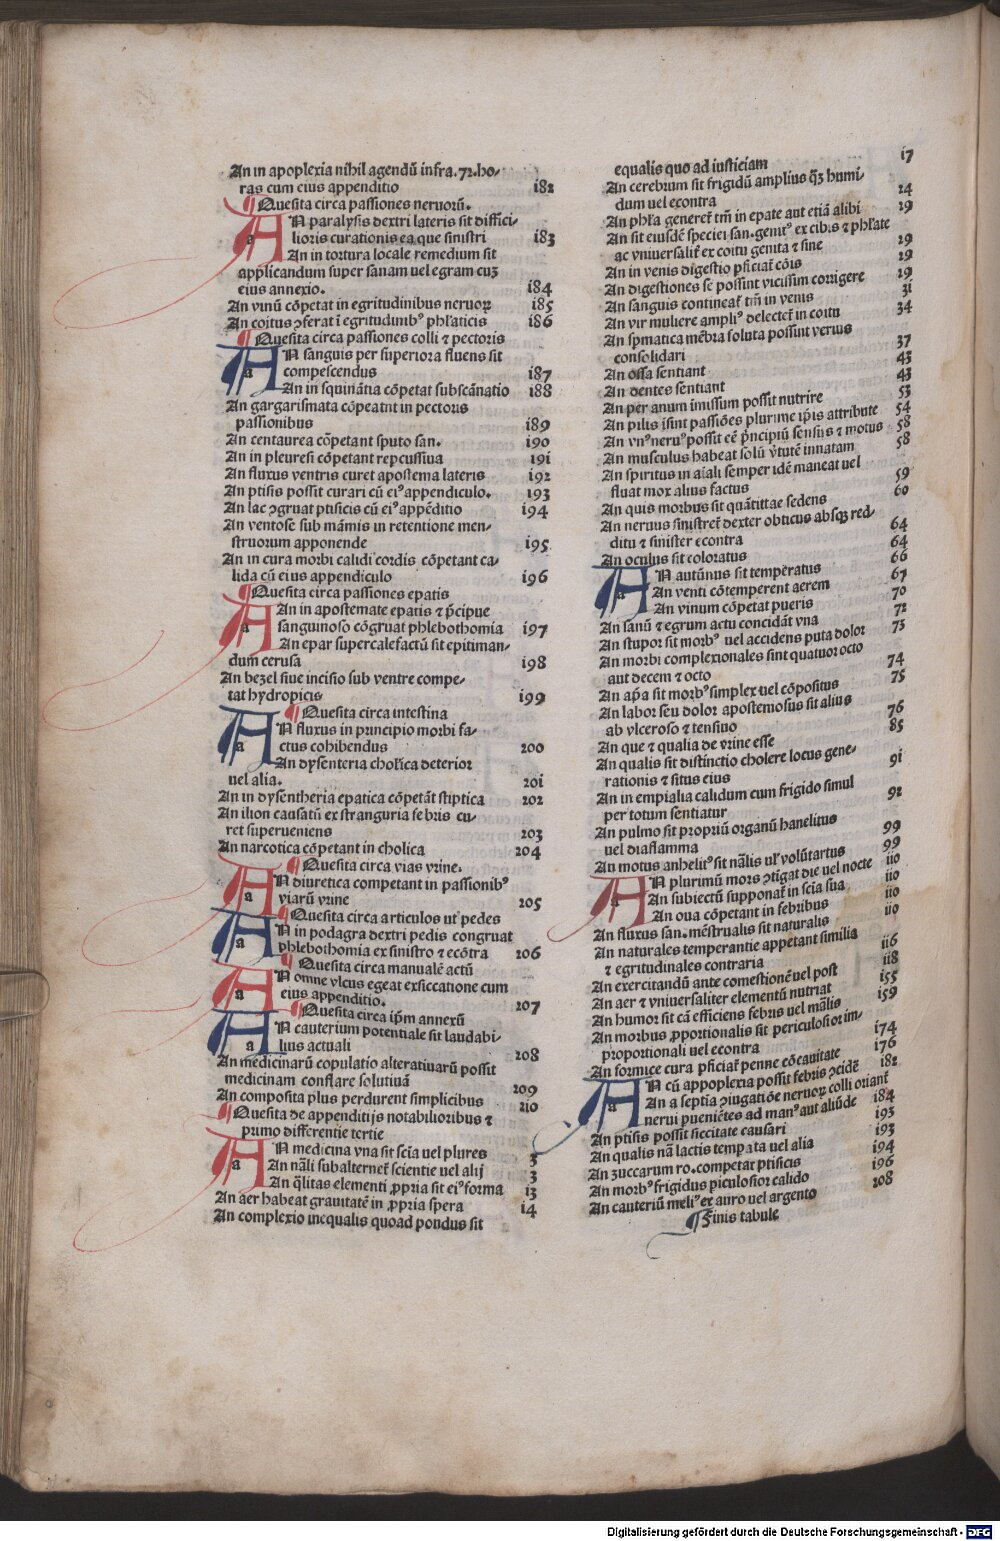 An in apoplexia nihil agendū infra .72. ho-
ras cum eius appenditio 182
¶ Quesita circa passiones neruorū.
AN paralysis dextri lateris sit diffici-
lioris curationis ea que sinistri 183
An in tortura locale remedium sit
applicandum super sanam uel egram cuꝫ
eius annexio. 184
An vinū cōpetat in egritudinibus neruoꝝ 185
An coitus ꝯferat ī egritudinibꝰ phľaticis 186
¶ Quesita circa passiones colli ⁊ pectoris
AN sanguis per superiora fluens sit
compescendus 187
An in squinātia cōpetat subscānatio 188
An gargarismata cōpeatnt in pectoris
passionibus 189
An centaurea cōpetant sputo san. 190
An in pleuresi cōpetant repcussiua 191
An fluxus ventris curet apostema lateris 192
An ptisis possit curari cū eiꝰ appendiculo. 193
An lac ꝯgruat ptisicis cū eiꝰ appēditio 194
An ventose sub māmis in retentione men-
struorum apponende 195
An in cura morbi calidi cordis cōpetant ca-
lida cū eius appendiculo 196
¶ Quesita circa passiones epatis
AAn in apostemate epatis ⁊ p̄cipue
sanguinoso cōgruat phlebothomia 197
An epar supercalefactū sit epitiman-
dum cerusa 198
An bezel siue incisio sub ventre compe-
tat hydropicis 199
¶ Quesita circa intestina
AN fluxus in principio morbi fa-
ctus cohibendus 200
An dysenteria choľica deterior
uel alia. 201
An in dysentheria epatica cōpetāt stiptica 202
An ilion causatū ex stranguria febris cu-
ret superueniens 203
An narcotica cōpetant in cholica 204
¶ Quesita circa vias vrine.
AN diuretica competant in passionibꝰ
viarū vrine 205
¶ Quesita circa articulos ut pedes
AN in podagra dextri pedis congruat
phlebothomia ex sinistro ⁊ ecōtra 206
¶ Quesita circa manualē actū
AN omne vlcus egeat exsiccatione cum
eius appenditio. 207
¶ Quesita circa ip̄m annexū
AN cauterium potentiale sit laudabi-
lius actuali 208
An medicinarū copulatio alteratiuarū possit
medicinam conflare solutiuā 209
An composita plus perdurent simplicibus 210
¶ Quesita de appenditijs notabilioribus ⁊
primo differentie tertie
AN medicina vna sit scīa uel plures 3
An nāli subalternet̄ scientie uel alij 3
An q̄litas elementi ꝓpria sit eiꝰ forma 13
An aer habeat grauitatē in ꝓpria spera 14
An complexio inequalis quoad pondus sit
equalis quo ad iusticiam 17
An cerebrum sit frigidū amplius q̄ꝫ humi-
dum uel econtra 24
An phľa generet̄ tm̄ in epate aut etiā alibi 29
An sit eiusdē speciei san. genitꝰ ex cibis ⁊ phľate
ac vniuersalit̄ ex coitu genita ⁊ sine 29
An in venis digestio pficiat̄ cōis 29
An digestiones se possint vicissim corrigere 29
An sanguis contineat̄ tm̄ in venis 31
An vir muliere ampliꝰ delectet̄ in coitu 34
An spmatica mēbra soluta possint verius
consolidari 37
An ossa sentiant 43
An dentes sentiant 43
An per anum imissum possit nutrire 53
An pilis isint passiōes plurime ip̄is attribute 54
An vnꝰ neruꝰ possit eē p̄ncipiū sensus ⁊ motus 58
An musculus habeat solū v̄tutē innatam 58
An spiritus in aīali semper idē maneat uel
fluat mox alius factus 59
An quis morbus sit quātitae sedens 60
An neruus sinistret̄ dexter obticus absqꝫ red-
ditu ⁊ sinister econtra 64
An oculus sit coloratus 64
AN autūnus sit temperatus 66
An venti cōtemperent aerem 67
An vinum cōpetat pueris 70
An sanū ⁊ egrum actu concidāt vna 72
An stupor sit morbꝰ uel accidens puta dolor 73
An morbi complexionales sint quatuor octo
aut decem ⁊ octo 74
An ap̄a sit morbꝰ simplex uel cōpositus 75
An labor seu dolor apostemosus sit alius
ab vlceroso ⁊ tensiuo 76
An que ⁊ qualia de vrine esse 85
An qualis sit distinctio cholere locus gene-
rationis ⁊ situs eius 91
An in empialia calidum cum frigido simul
per totum sentiatur 92
An pulmo sit propriū organū hanelitus
uel diaflamma 99
An motus anhelitꝰ sit nālis ul̄ volūtartus 99
AN plurimū mors ꝯtigat die uel nocte 110
An subiectū supponat̄ in scīa sua 110
An oua cōpetant in febribus 110
An fluxus san. mēstrualis sit naturalis 110
An naturales temperantie appetant similia
⁊ egritudinales contraria 116
An exercitandū ante comestionē uel post 118
An aer ⁊ vniuersaliter elementū nutriat 155
An humor sit cā efficiens febris uel mālis 159
An morbus ꝓportionalis sit periculosior im-
proportionali uel econtra 174
An formice cura pficiat̄ penne cōcauitate 176
AN cū appoplexia possit febris ꝯcidē 182
An a septia ꝯiugatiōe neruoꝝ colli oriant̄
nerui pueniētes ad manꝰ aut aliūde 184
An ptisis possit siccitate causari 193
An qualis nā lactis tempata uel alia 193
An zuccarum ro. competat ptisicis 194
An morbꝰ frigidus piculosior calido 196
An cauteriū meliꝰ ex auro uel argento 208
¶ Finis tabule
Digitalisierung gefördert durch die Deutsche Forschungsgemeinschaft - DFG